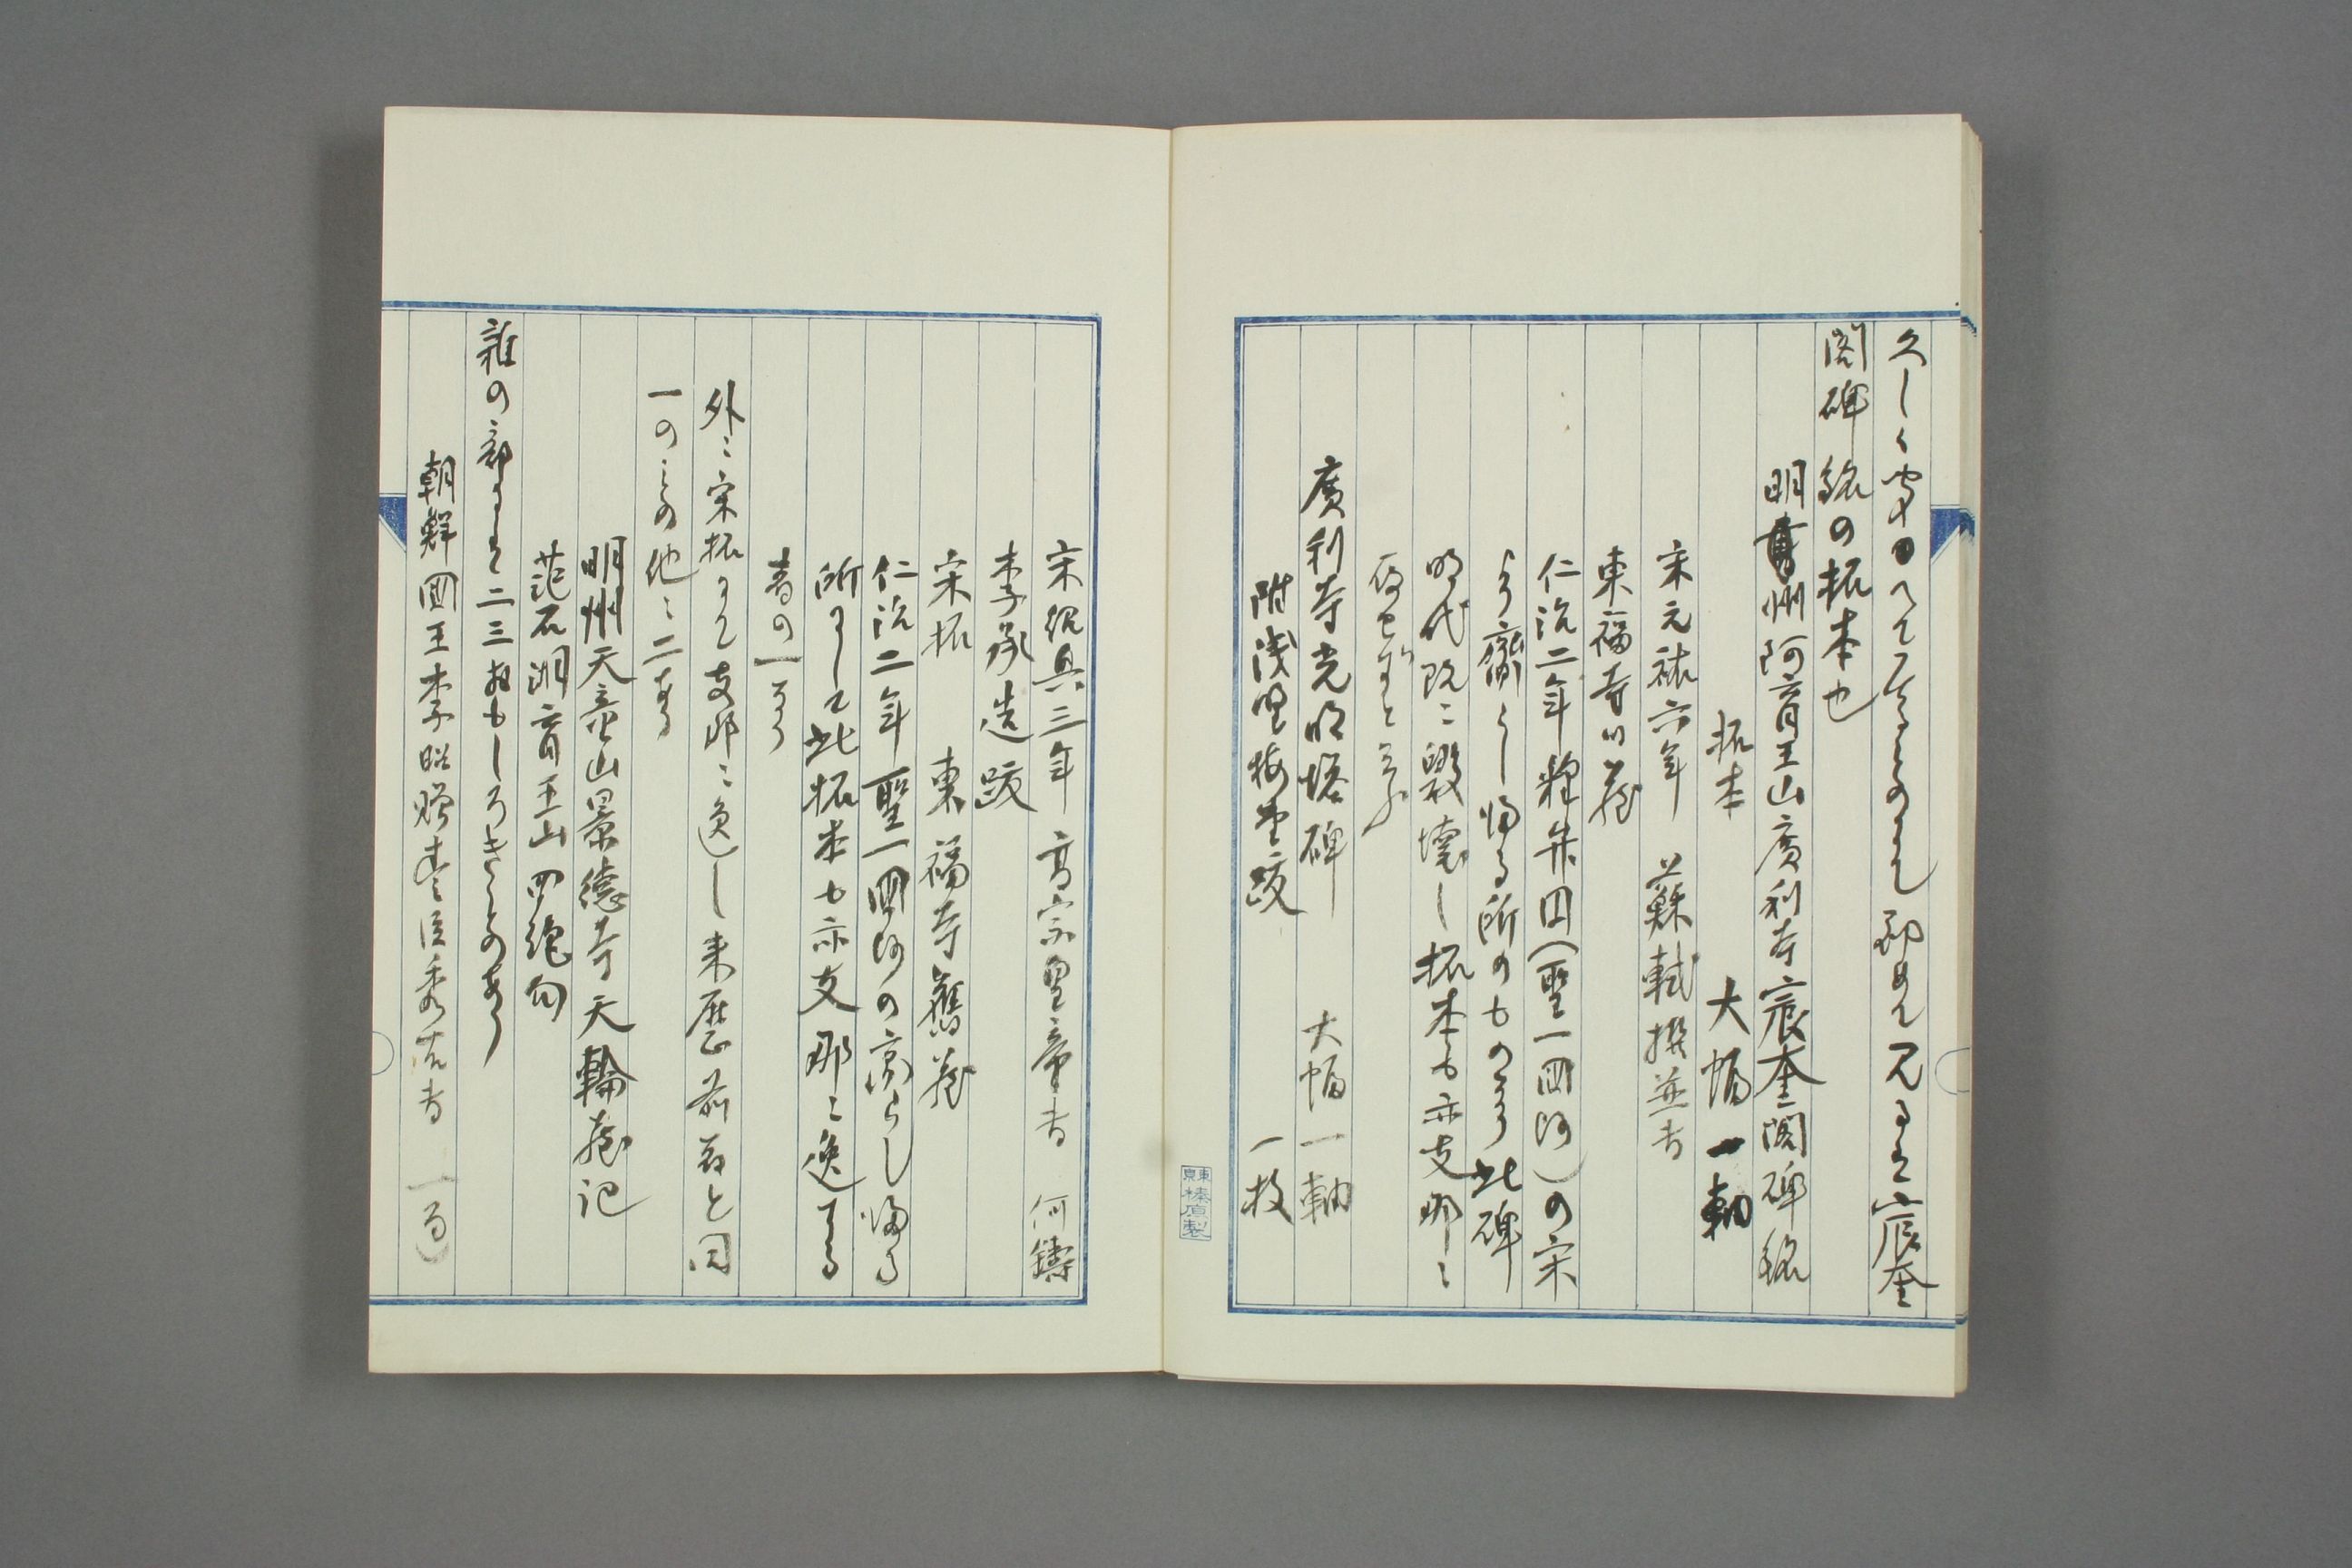 久しく聞
閣碑銘の拓本也
明州阿育王山廣利寺宸奎閣碑銘
拓本 大幅一軸
宋元祐六年 蘇軾撰並書
東福寺旧蔵
仁治二年釋弁円(聖一国師)の宋
より齎らし帰る所のものなり此碑
明代既に毀壊し拓本も亦支那に
廣利寺光明塔碑 大幅一軸
附浅野梅堂跋 一枚
宋紹興三年 高宗皇帝書 何鑄
李承造跋
宋拓 東福寺舊蔵
仁治二年聖一國師の齎らし帰る
所にして此拓本も亦支那に逸する
書の一なり
外に宋拓にて支那に逸し来歴前者と同
一のもの他に二あり
明州天童山景德寺天輪蔵記
范石湖育王山四絶句
雑の部には二三おもしろきものあり
朝鮮國王李昖贈豊臣秀吉書 一通
東京榛原製